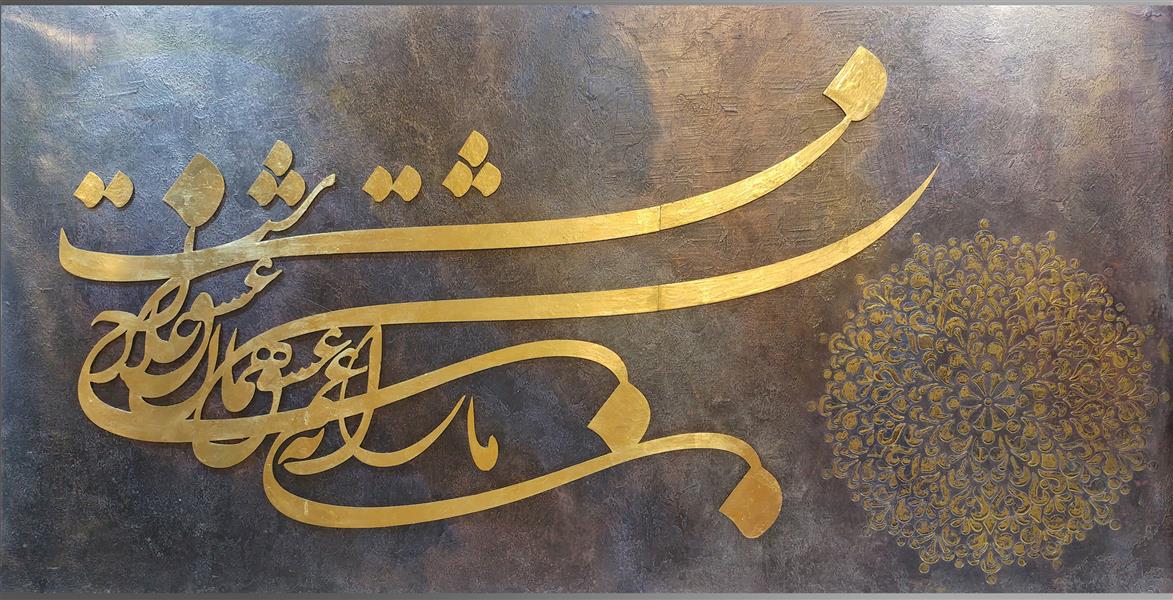 ما را به غم عشق همان عشق علاج است